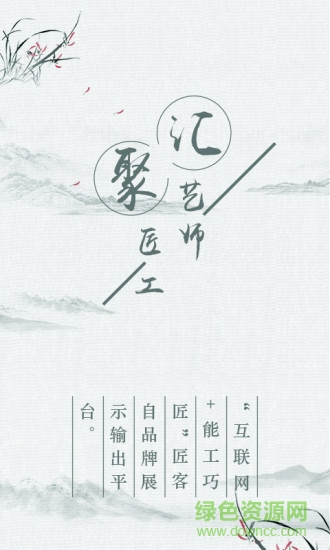 汇艺师
聚匠工
“互联网
+能工巧
匠”匠客
自品牌展
示输出平
台。
绿色资源网
www.downcc.com